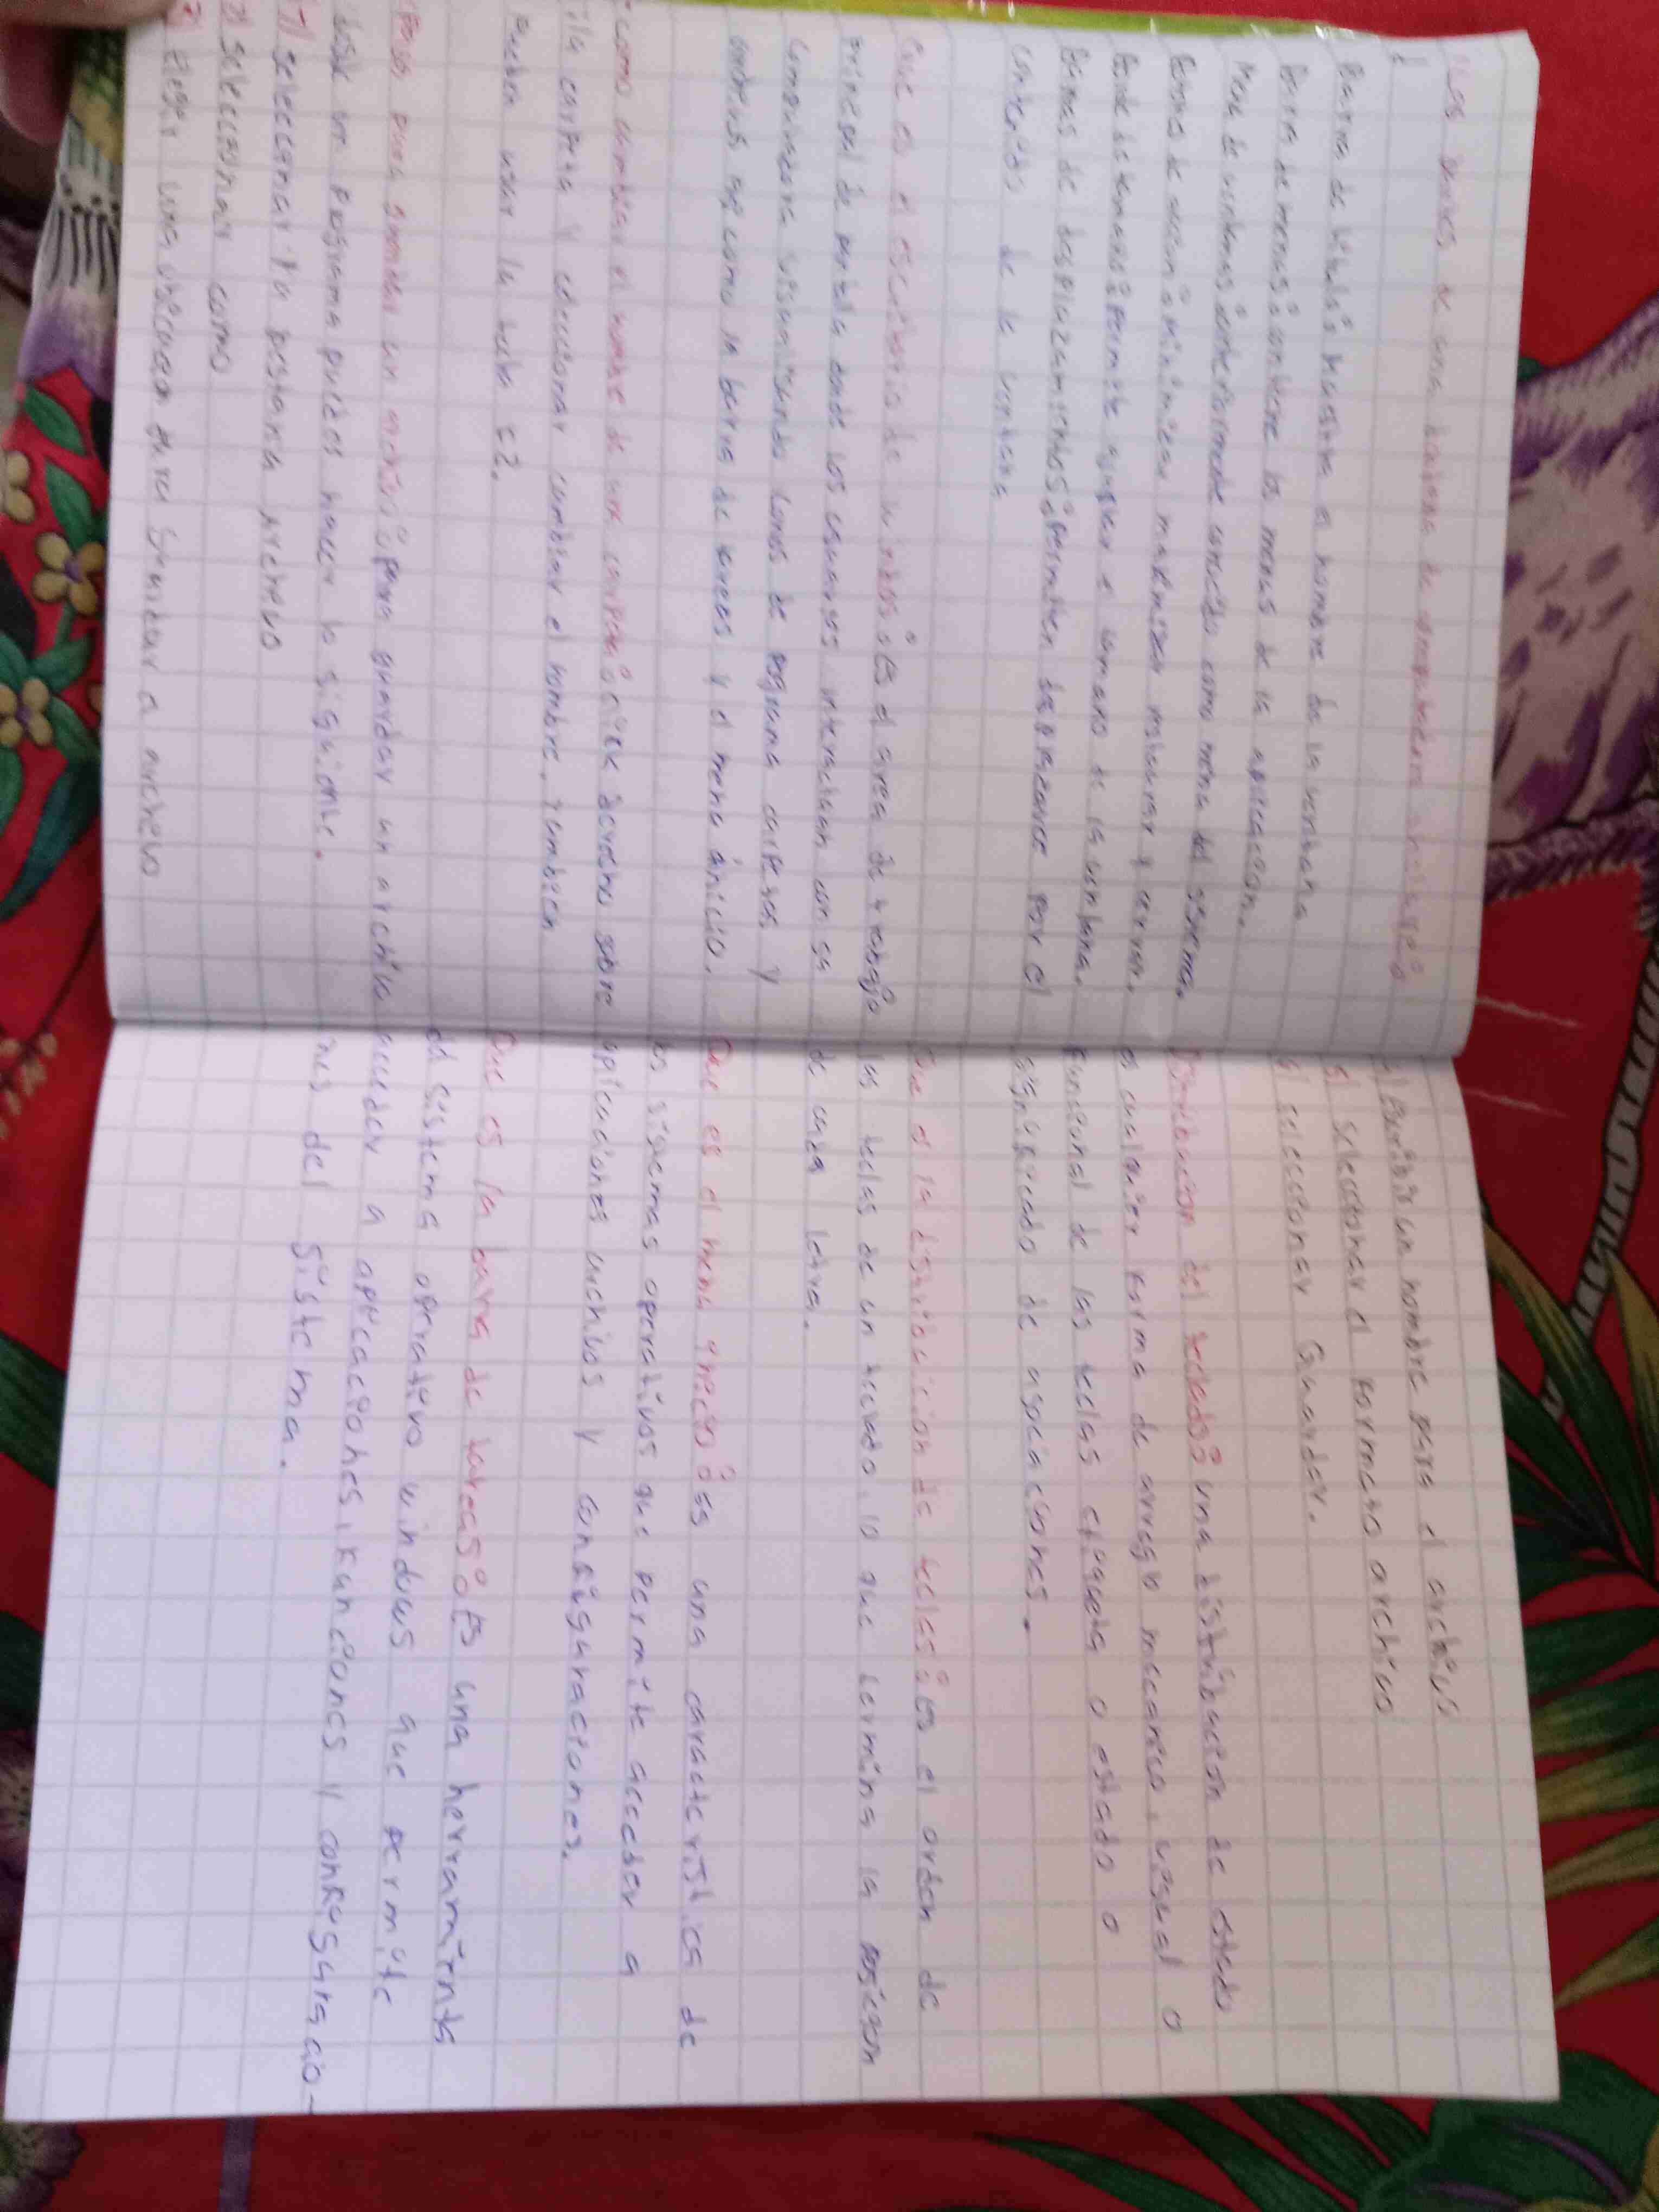 Los partes de una ventana de
Barra de título: muestra el nombre de la ventana
Barra de menus: contiene los menus de la aplicacion.
Menu de ventanas: conocido como menu del sistema.
Botones de minimizar maximizar restaurar y cerrar.
Borde de tamaños: permite el tamaño de la ventana.
Barras de desplazamientos: permiten desplazarse por el
contenido de la ventana
Que es el escritorio de windos: Es el area de trabajo
principal de pantalla donde los usuarios interactuan con sa
Computadora iconos de programa carpetas y
como la barra de tareas y el menu ínicio.
como cambiar el nombre de una carpeta: click derecho sobre
la carpeta y seleccionar cambiar el nombre, tambien
Pueden usar la tecla F2.
Pasos para guardar un archivo: para guardar un archivo
desde un programa puedes hacer lo siguiente.
1) seleccionar la pestaña Archivo
2) Seleccionar como
3) Elegir una ubicacion para Guardar a archivo
4) Escribir un nombre para el archivo
5) seleccionar el formato archivo
6) seleccionar Guardar.
Distribucion del teclado: una distribucion de estado
es cualquier forma de arreglo mecanico, visual o
funcional de las teclas etiqueta o estado o
significado de asociaciones.
Que el la distribucion de teclas: Es el orden de
las teclas de un teclado, lo que termina la posicion
de cada letra.
Que es el menu inicio: es una caracteristica de
los sistemas operativos que permite acceder a
aplicaciones archibos y configuraciones.
Que es la barra de tareas: Es una herramienta
del sistema operativo windows que permite
acceder a aplicaciones, funciones y configuracio-
nes del sistema.